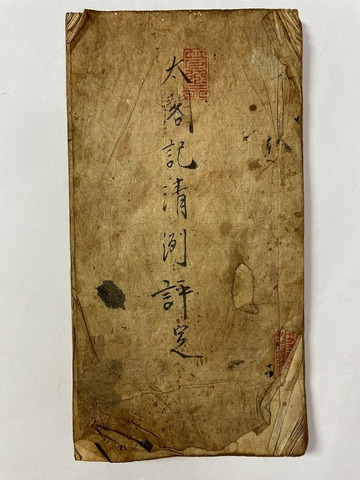 太閤記清洲評定